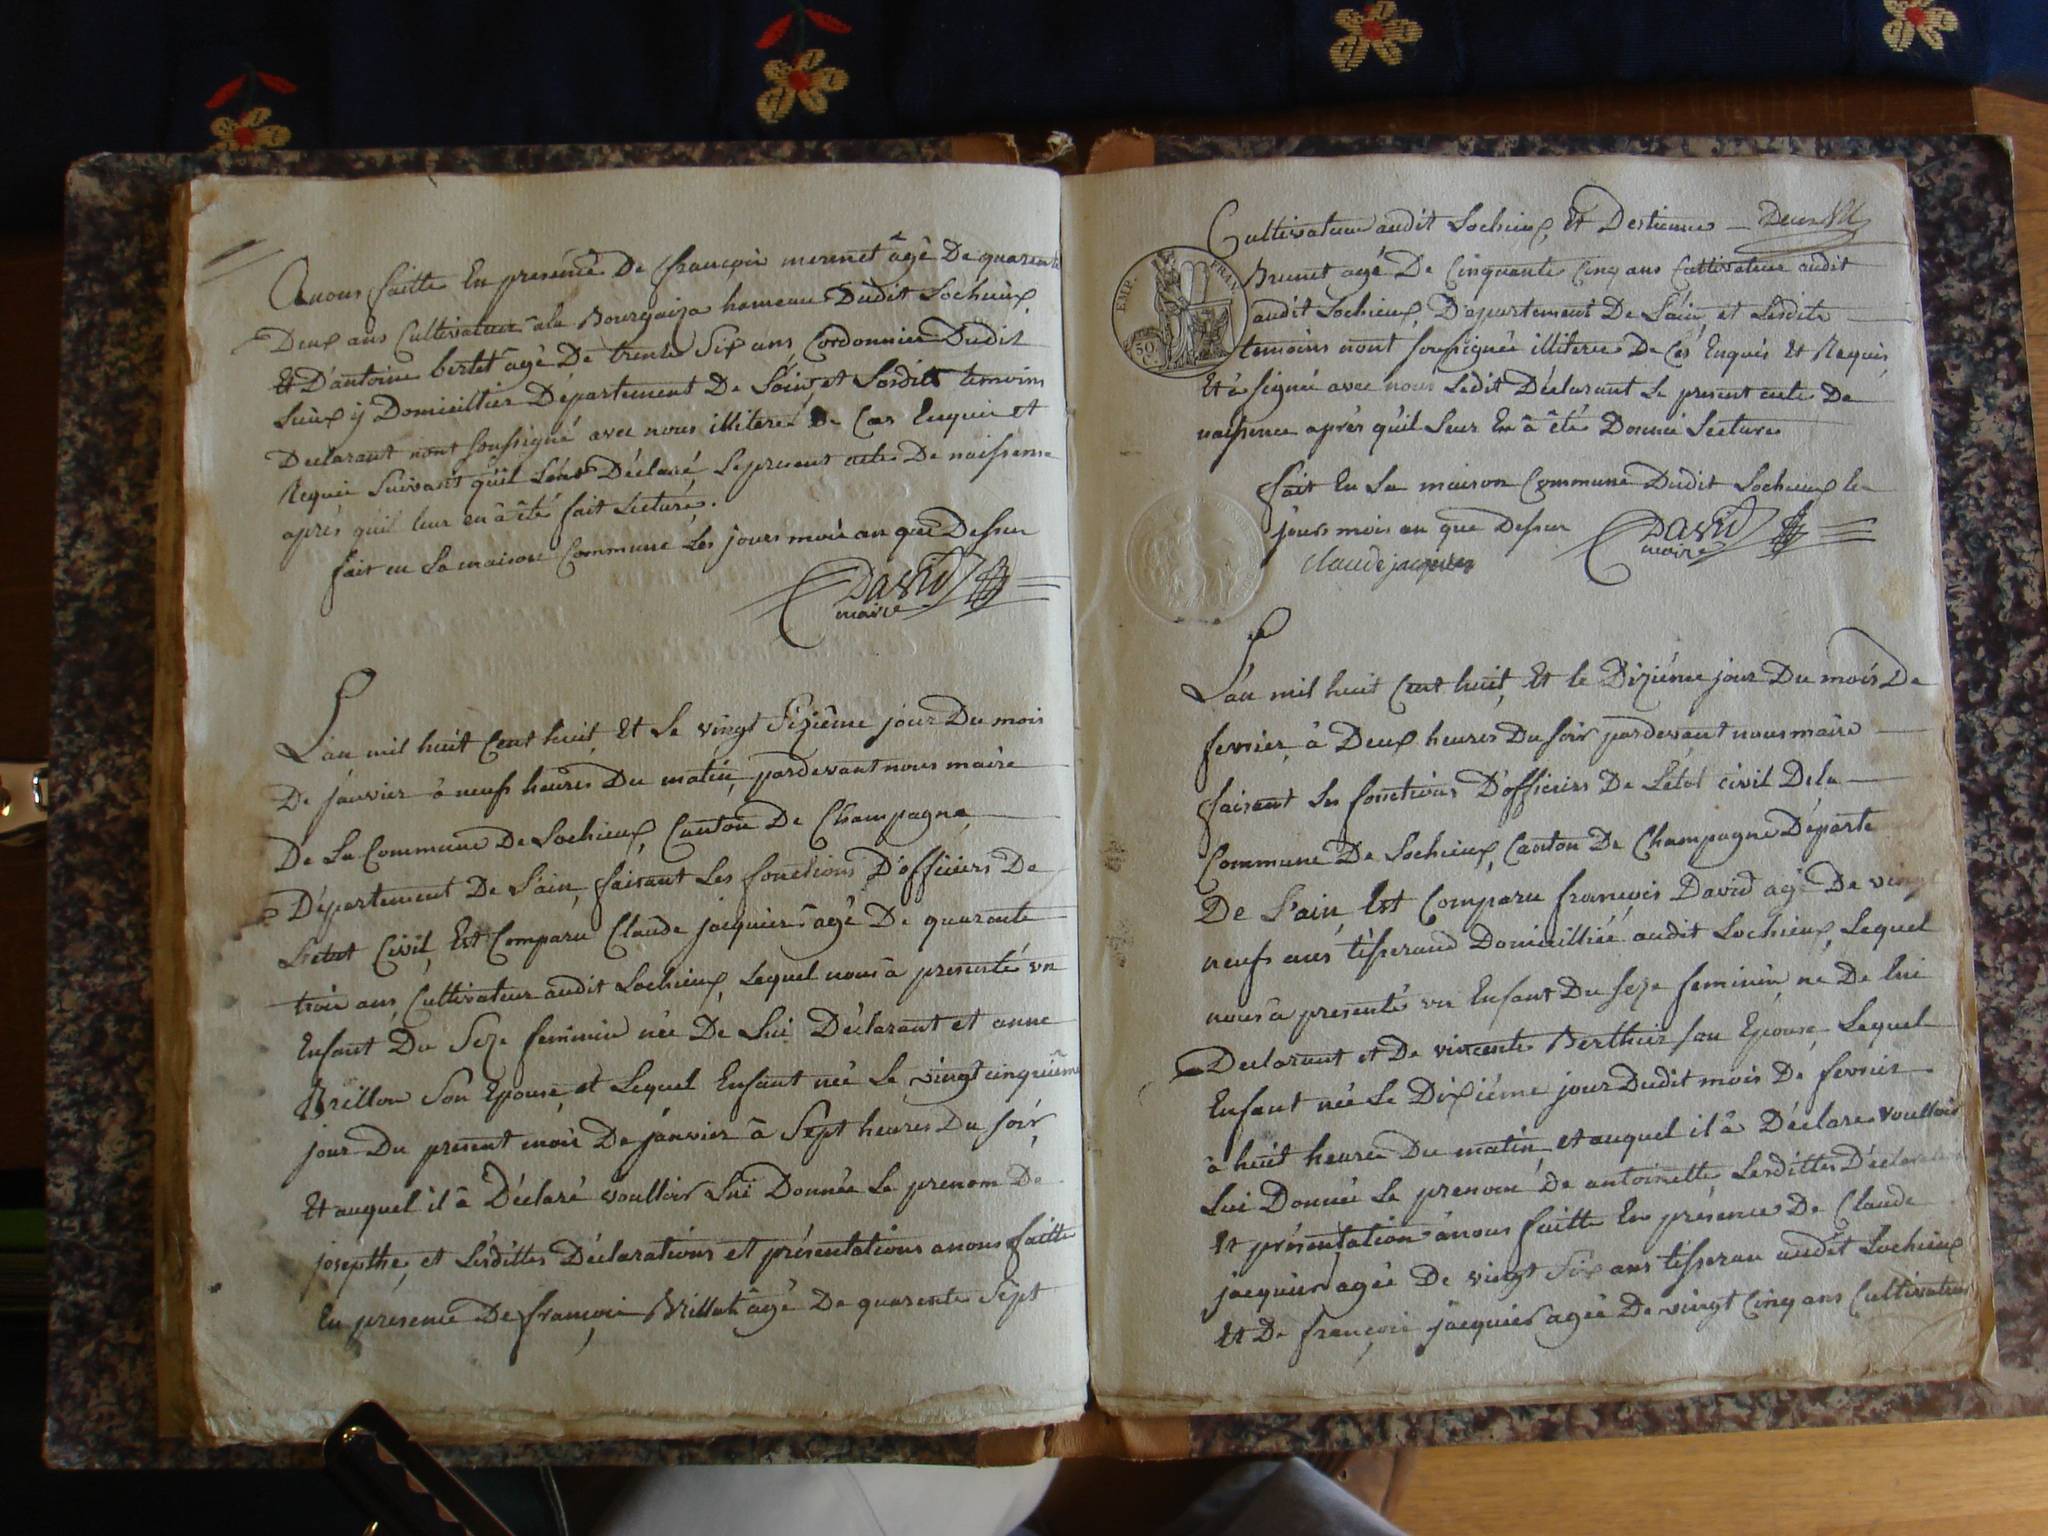 Anous faitte En presence De françois mermet âgé De quarente
Deux ans Cultivateur à la Bourgoiza hameau Dudit Lochieux,
Et D'antoine bertet âgé De trente Six ans Cordonnier Dudit
Lieux ÿ Domicillier Département De L'ain, et Lesdits temoins
Declarant n'ont soussigné avec nous illiteré De Ces Enquis et
Requis Suivant qu'il L'ont Déclaré, Le present acte De naissence
après qu'il leur en â été fait Lecture.
fait en La maison Commune Les jours mois an que Dessus
David
maire
L'an mil huit Cent huit Et Le vingt Sizième jour Du mois
De janvier â neufs heures Du matin, pardevant nous maire
De La Commune De Lochieux, Canton De Champagne
Département De L'ain, faisant Les fonctions D'officiers De
L'etat Civil, Est Comparu Claude jacquier âgé De quarante
trois ans, Cultivateur audit Lochieux, Lequel nous â presenté un
Enfant Du Sexe feminin née De Lui Déclarant et anne
Brillon Son Epouse et Lequel Enfant née Le vingt cinquième
jour Du present mois De janvier â Sept heures Du soir
Et auquel il â Déclaré voulloir Lui Donnée Le prenom De
josepthe, et Lesdittes Déclarations et présentations anous faitte
En présence De françois Brillat âgé De quarente Sept
Cultivateur audit Lochieux, Et Destienne
Brunet agé De Cinquante Cinq ans Cultivateur audit
audit Lochieux, Département De L'ain, et Lesdits
temoins n'ont soussignée illiterer De Ces Enquis Et Requis
Et â signé avec nous Ledit Déclarant Le present acte De
naissence après qu'il Leur En â été Donnée Lecture
EMP. FRAN
50
C
fait En La maison Commune Dudit Lochieux les
jours mois an que Dessus David
maire
Claude jacquier
L'an mil huit Cent huit, Et le Dizième jour Du mois De
fevrier â Deux heures Du soir pardevant nous maire
faisant Les fonctions D'officiers De L'etat civil De la
Commune De Lochieux, Canton De Champagne Départe
De L'ain, Est Comparu françois David agé De vingt
neufs ans tisserand Domicilliée audit Lochieux, Lequel
nous â presenté un Enfant Du Sexe feminin né De lui
Declarant et De vincente Berthier son Epouse, Lequel
Enfant née Le Dixiéme jour Dudit mois De fevrier
â huit heures Du matin, et auquel il â Déclare voulloir
Lui Donnée Le prenom De antoinette Lesdittes Déclaration
Et présentation anous faitte En présence De Claude
jacquier agée De vingt Six ans tisseran audit Lochieux
Et De françois jacquier agée De vingt Cinq ans Cultivateur